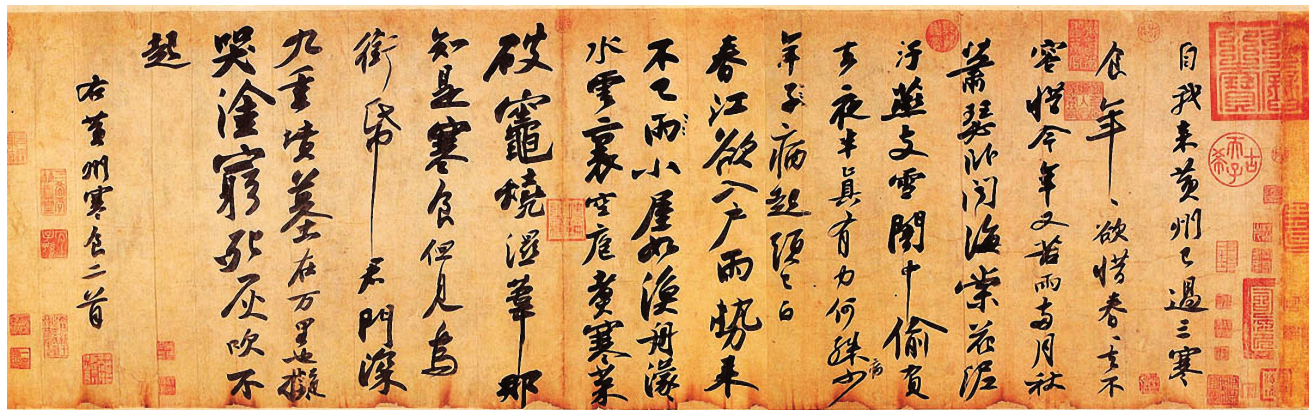 自我来黄州已過三寒
食年〻欲惜春〻去不
容惜今年又苦雨兩月秋
蕭瑟卧聞海棠花泥
汙燕支雪闇中偷負
去夜半真有力何殊病少
年子病起頭已白
春江欲入户雨勢来
不已雨小屋如漁舟濛〻
水雲裏空庖煑寒菜
破竈燒濕葦那
知是寒食但見烏
銜帋君門深
九重墳墓在万里也擬
哭塗窮死灰吹不
起
右黄州寒食二首
古希天子